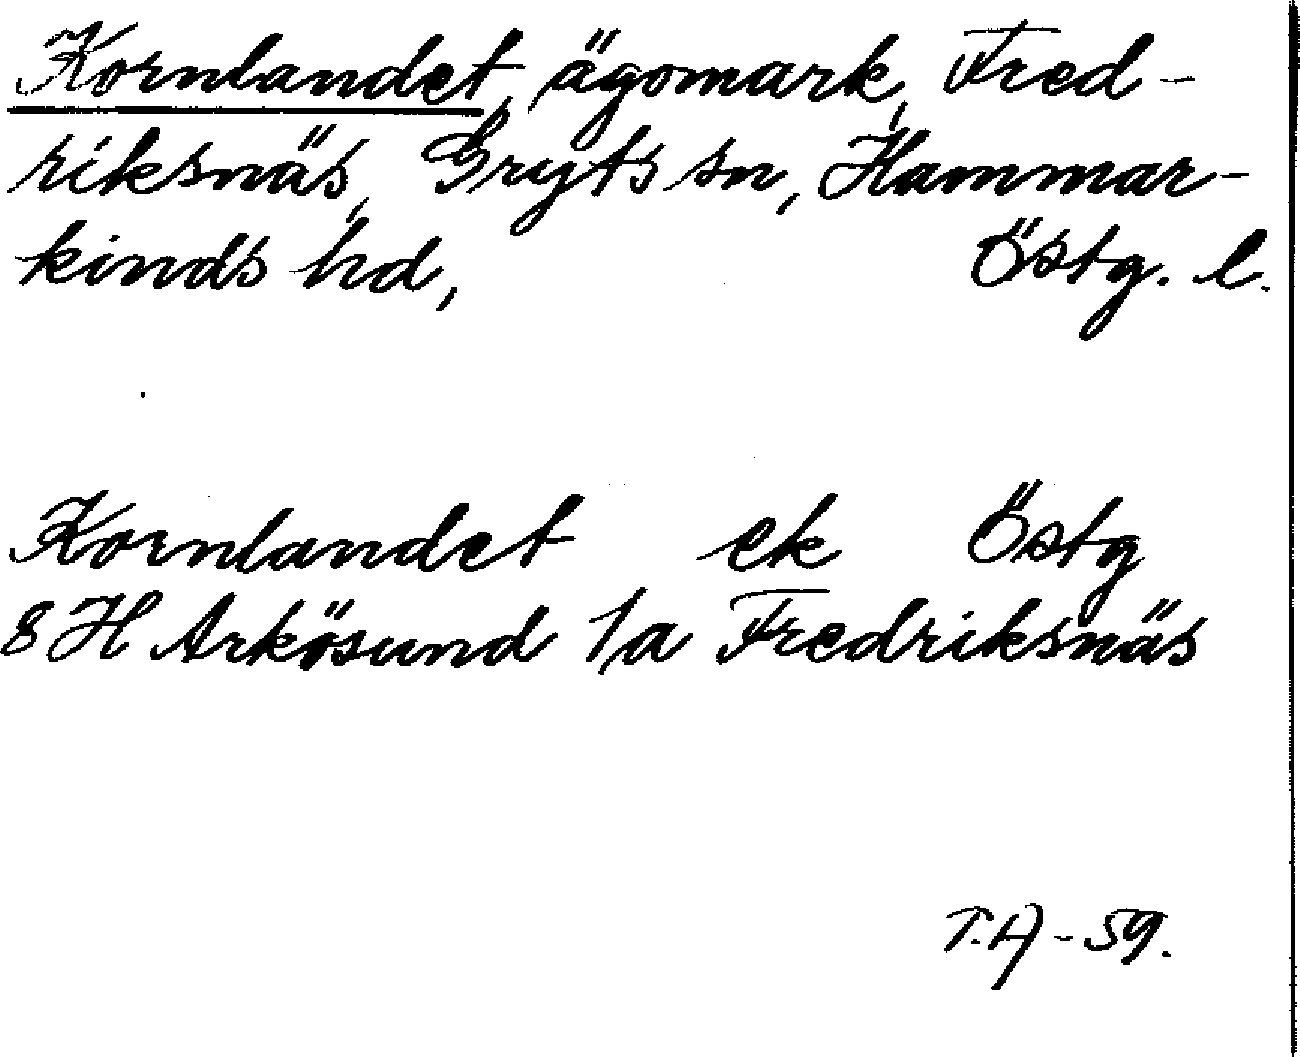 Kornlandet, ägomark, Fred-
riksnäs, Gryts sn, Hammar-
kinds hd, Östg. l.
Kornlandet ek Östg
8 H Arkösund 1/a Fredriksnäs
T.A-59.